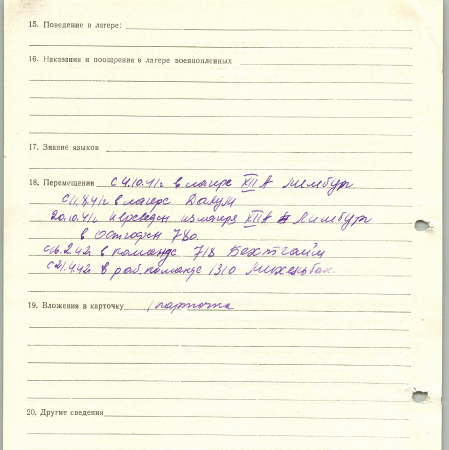 15. Поведение в лагере:
16. Наказания и поощрения в лагере военнопленных
17. Знание языков
18. Перемещения с 4.10.41г в лагере XII А Лимбург
с 11.8.41г в лагере Далум
20.10.41г переведен из лагеря XII А Лимбург
в 780
с 16.2.42 в команде 718
с 21.4.42 в раб. команде 1310
19. Вложения в карточку 1 карточка
20. Другие сведения